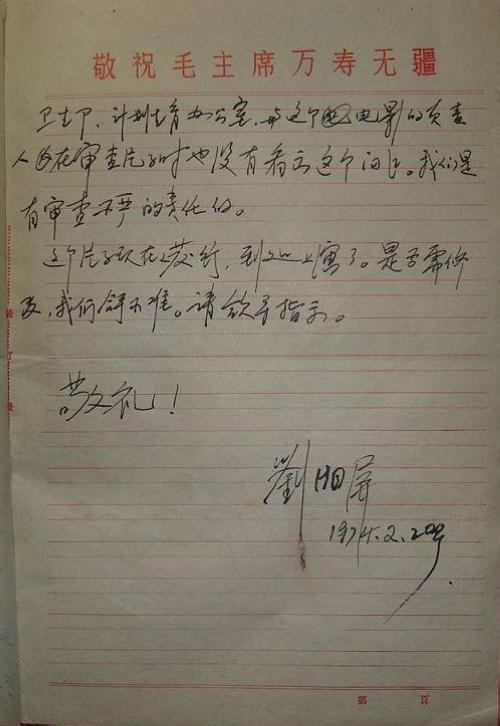 敬祝毛主席万寿无疆
卫生部、计划生育办公室，与这个电影的负责
人在审查片子时也没有看出这个问题。我们是
有审查不严的责任的。
这个片子现在已发行，到处上演了。是否需修
改，我们拿不准。请领导指示。
敬礼！
劉
1974.2.20
第 頁